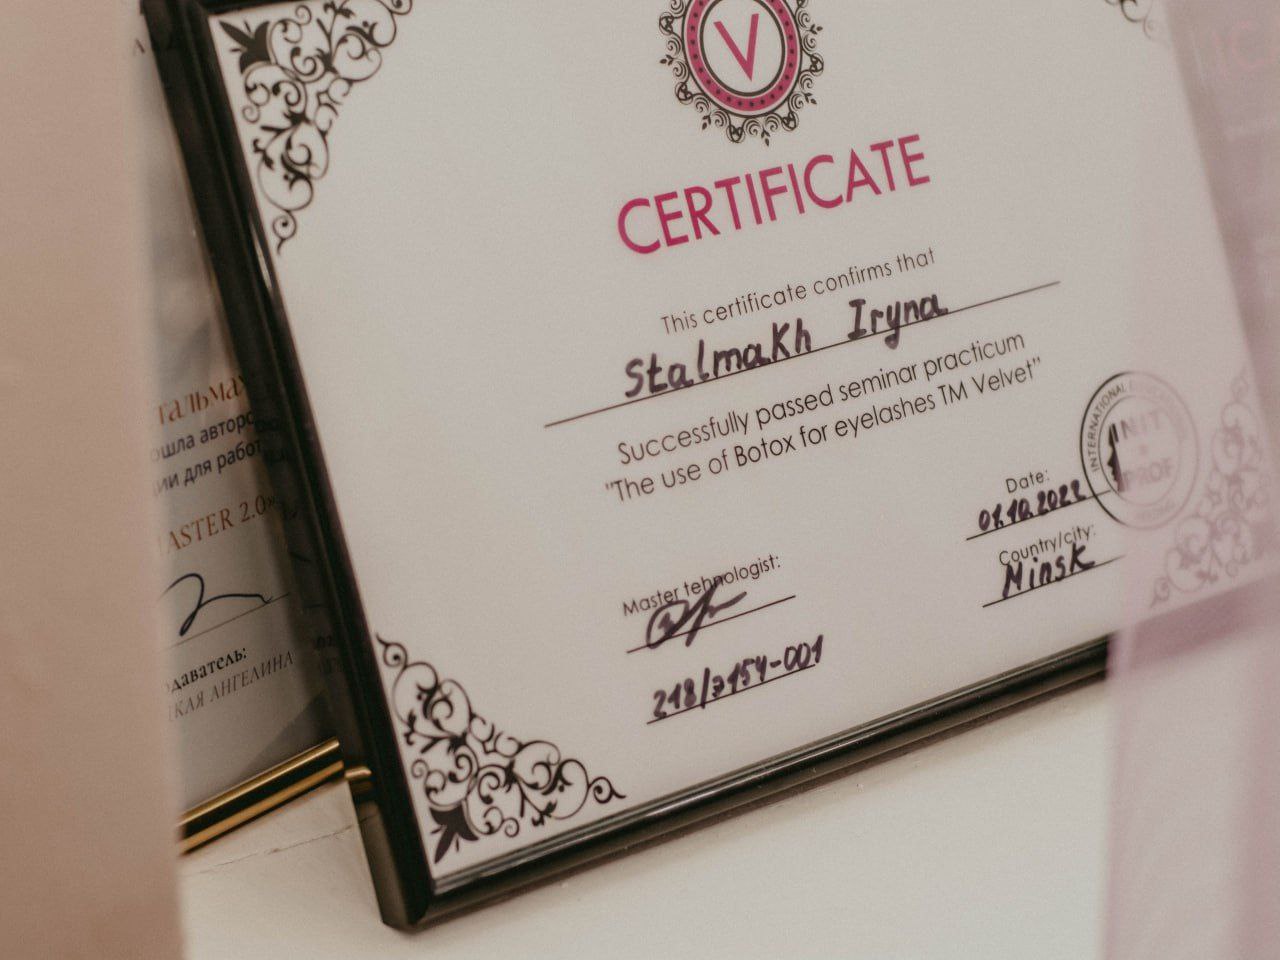 V
CERTIFICATE
This certificate confirms that
Stalmakh Iryna
Successfully passed seminar practicum
"The use of Botox for eyelashes TM Velvet"
Date:
01.10.2022
Country/city:
Minsk
Master tehnologist:
218/7154-001
INTERNATIONAL
INIT
PROF
тальмах
ошла авторс
ии для работ
ASTER 2.0»
одаватель:
КАЯ АНГЕЛИНА